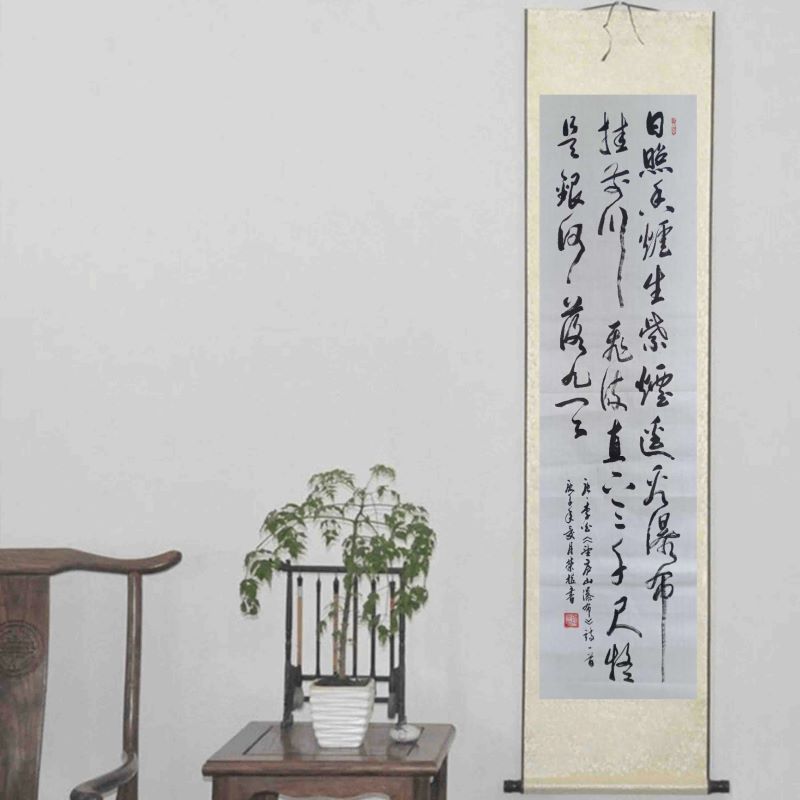 日照香爐生紫煙遥看瀑布
挂前川飛流直下三千尺疑
是銀河落九天
唐·李白《望庐山瀑布》詩一首
庚子年夏月書